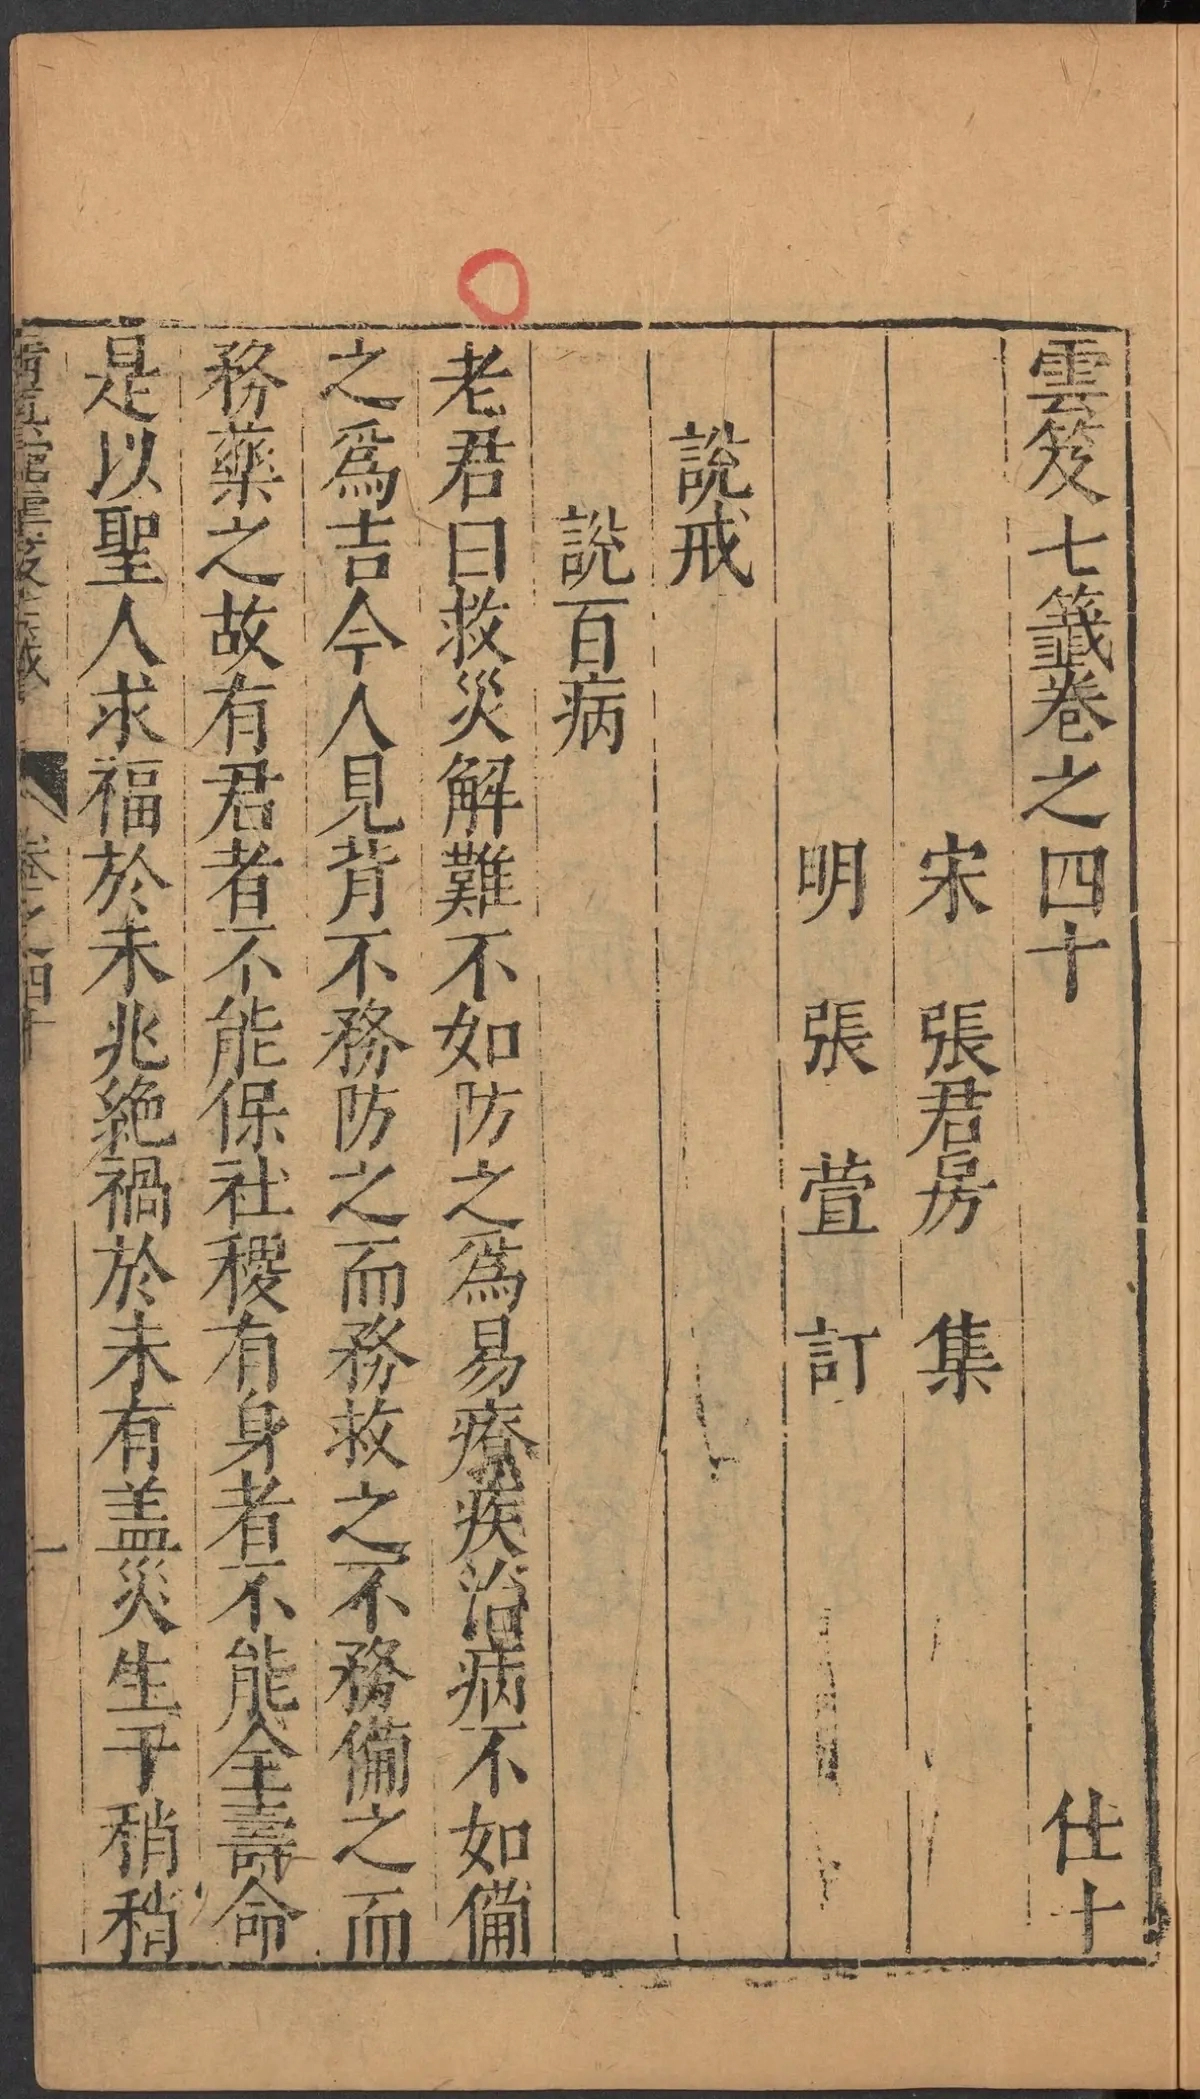 雲笈七籤卷之四十　仕十
宋　張君房　集
明　張　萱　訂
說戒
說百病
老君曰救災解難不如防之爲易療疾治病不如備
之爲吉今人見背不務防之而務救之不務備之而
務藥之故有君者不能保社稷有身者不能全壽命
是以聖人求福於未兆絶禍於未有盖災生于稍稍
卷之四十
一